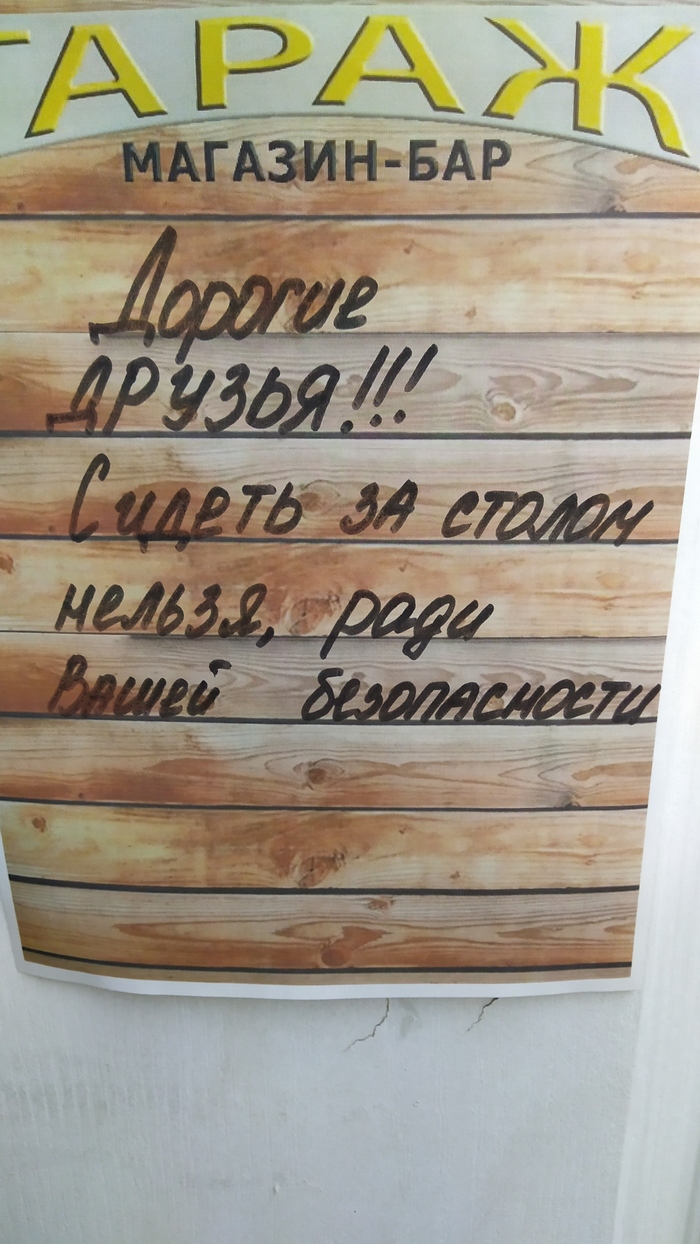 ГАРАЖ
МАГАЗИН-БАР
Дорогие
друзья!!!
Сидеть за столом
нельзя, ради
Вашей безопасности